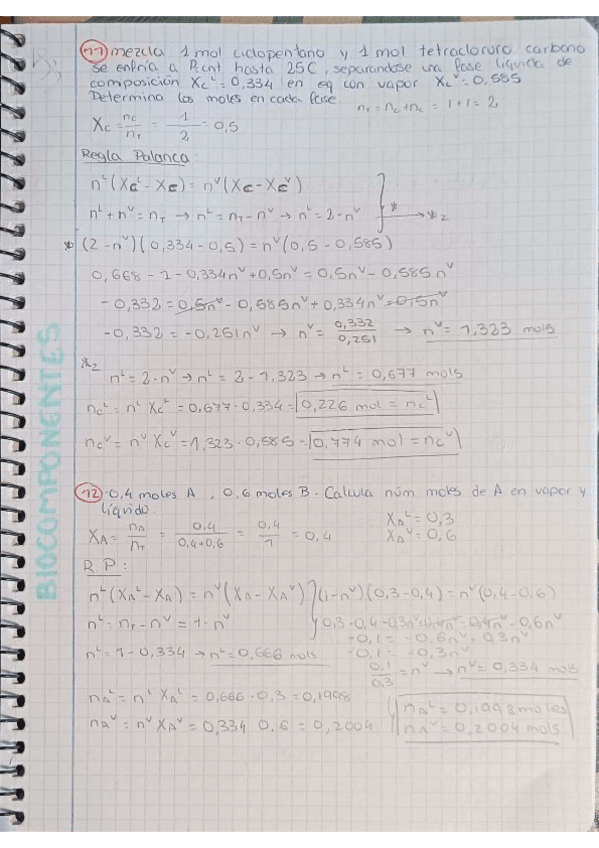 11 mezcla 1 mol ciclopentano y 1 mol tetracloruro carbono
se enfria a P.cnt hasta 25C, separandose una fase liquida de
composición Xc^L = 0,334 en eq con vapor Xc^V = 0.585
Determina los moles en cada fase.
n_T = n_c + n_c = 1+1 = 2
Xc = nc/n_T = 1/2 = 0,5
Regla Palanca:
n^L (Xc^L - Xc) = n^V (Xc - Xc^V)
n^L + n^V = n_T → n^L = n_T - n^V → n^L = 2 - n^V
* → *2
* (2 - n^V)(0,334 - 0,5) = n^V (0,5 - 0,585)
0,668 - 1 - 0,334n^V + 0,5n^V = 0,5n^V - 0,585n^V
-0,332 = 0,5n^V - 0,585n^V + 0,334n^V - 0,5n^V
-0,332 = -0,251n^V → n^V = 0,332/0,251 → n^V = 1,323 mols
*2
n^L = 2 - n^V → n^L = 2 - 1,323 → n^L = 0,677 mols
nc^L = n^L Xc^L = 0,677 · 0,334 = 0,226 mol = nc^L
nc^V = n^V Xc^V = 1,323 · 0,585 = 0,774 mol = nc^V
BIOCOMPONENTES
12 0,4 moles A, 0,6 moles B. Calcula núm moles de A en vapor y
líquido.
X_A^L = 0,3
X_A^V = 0,6
X_A = n_A/n_T = 0,4/0,4+0,6 = 0,4/1 = 0,4
R.P:
n^L (X_A^L - X_A) = n^V (X_A - X_A^V)
(1 - n^V)(0,3 - 0,4) = n^V (0,4 - 0,6)
n^L = n_T - n^V = 1 - n^V
0,3 - 0,4 - 0,3n^V + 0,4n^V = 0,4n^V - 0,6n^V
-0,1 = -0,6n^V + 0,3n^V
-0,1 = -0,3n^V
n^L = 1 - 0,334 → n^L = 0,666 mols
0,1/0,3 = n^V → n^V = 0,334 mols
n_A^L = n^L X_A^L = 0,666 · 0,3 = 0,1998
n_A^V = n^V X_A^V = 0,334 · 0,6 = 0,2004
n_A^L = 0,1998 moles
n_A^V = 0,2004 mols